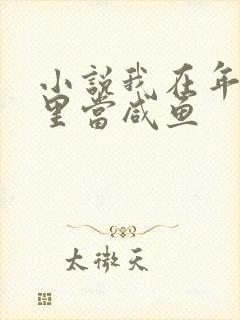 小说我在年
里当咸鱼
太微天